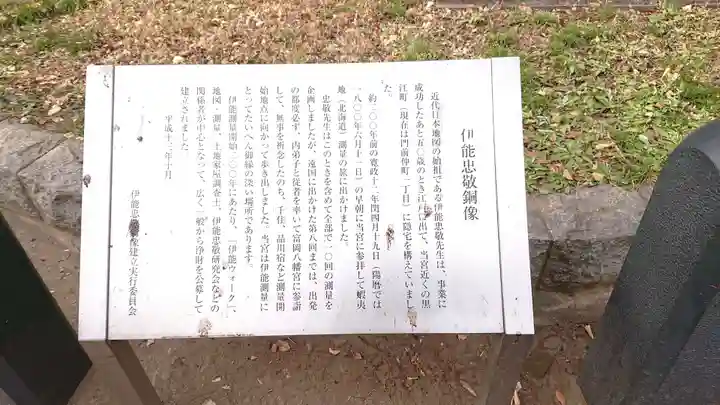 伊能忠敬銅像
近代日本地図の始祖である伊能忠敬先生は、事業に
成功したあと五〇歳のとき江戸に出て、当宮近くの黒
江町(現在は門前仲町一丁目)に隠宅を構えていまし
た。
約二〇〇年前の寛政十二年閏四月十九日(陽暦では
一八〇〇年六月十一日)の早朝に当宮に参拝して蝦夷
地(北海道)測量の旅に出かけました。
忠敬先生はこのときを含めて全部で一〇回の測量を
企画しましたが、遠国に出かけた第八回までは、出発
の都度必ず、内弟子と従者を率いて富岡八幡宮に参詣
して、無事を祈念したのち、千住、品川宿など測量開
始地点に向かって歩き出しました。当宮は伊能測量に
とってたいへん御縁の深い場所であります。
伊能測量開始二〇〇年にあたり、「伊能ウォーク」、
地図・測量・土地家屋調査士、伊能忠敬研究会などの
関係者が中心となって、広く一般から浄財を公募して
建立されました。
平成十三年十月
伊能忠敬銅像建立実行委員会